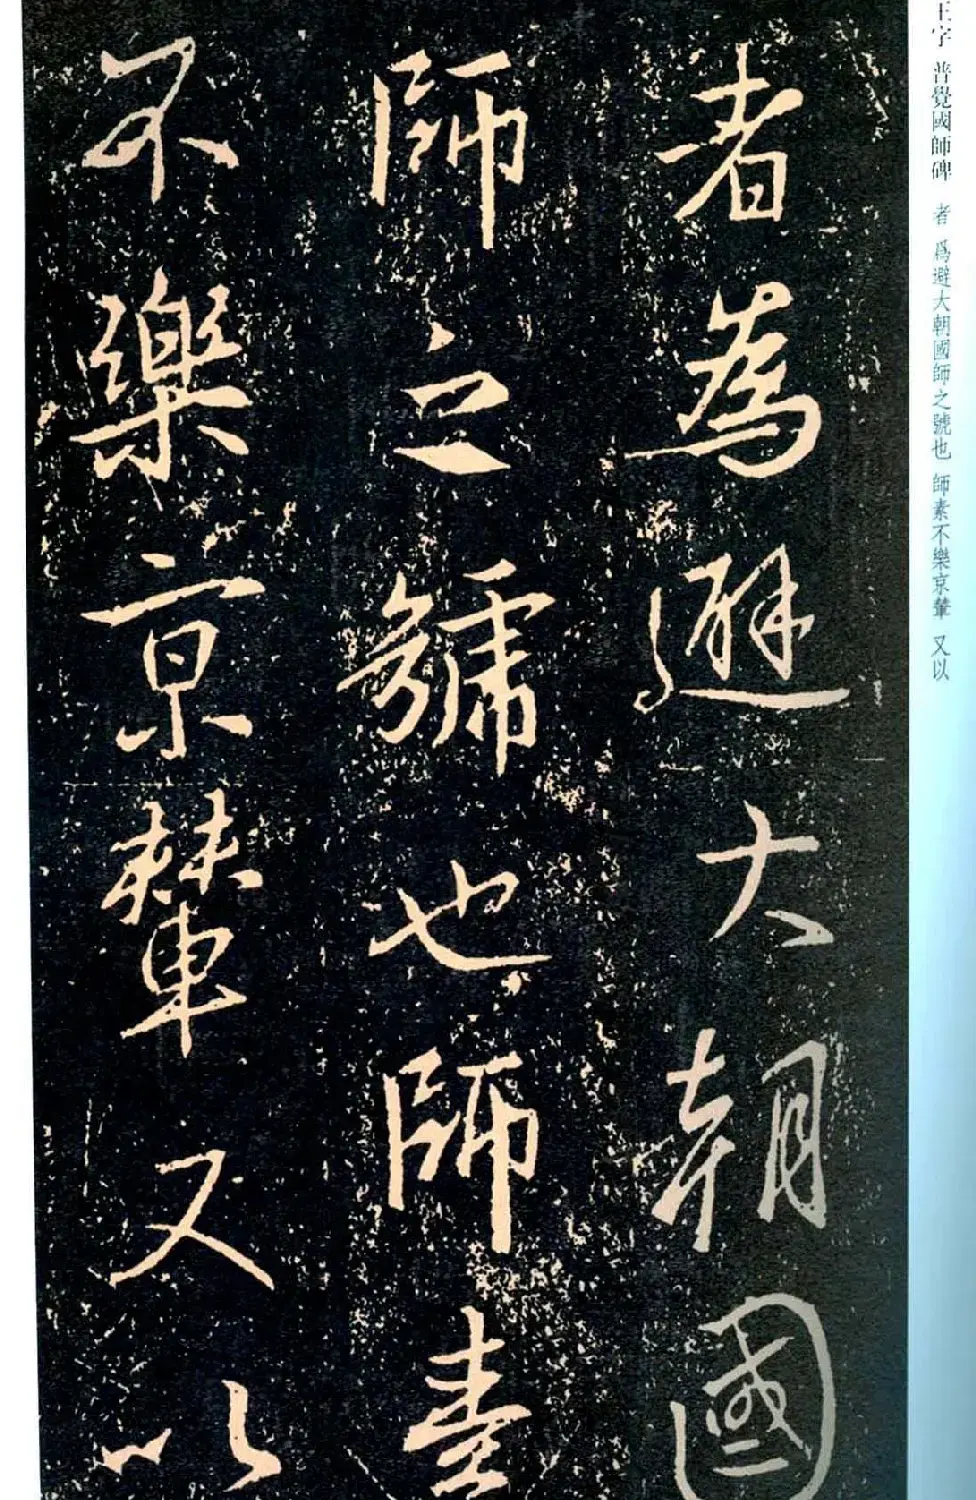 王字 普覺國師碑 者 爲避大朝國師之號也 師素不樂京輦 又以
者為避大朝國
師之號也師素
不樂京輦又以